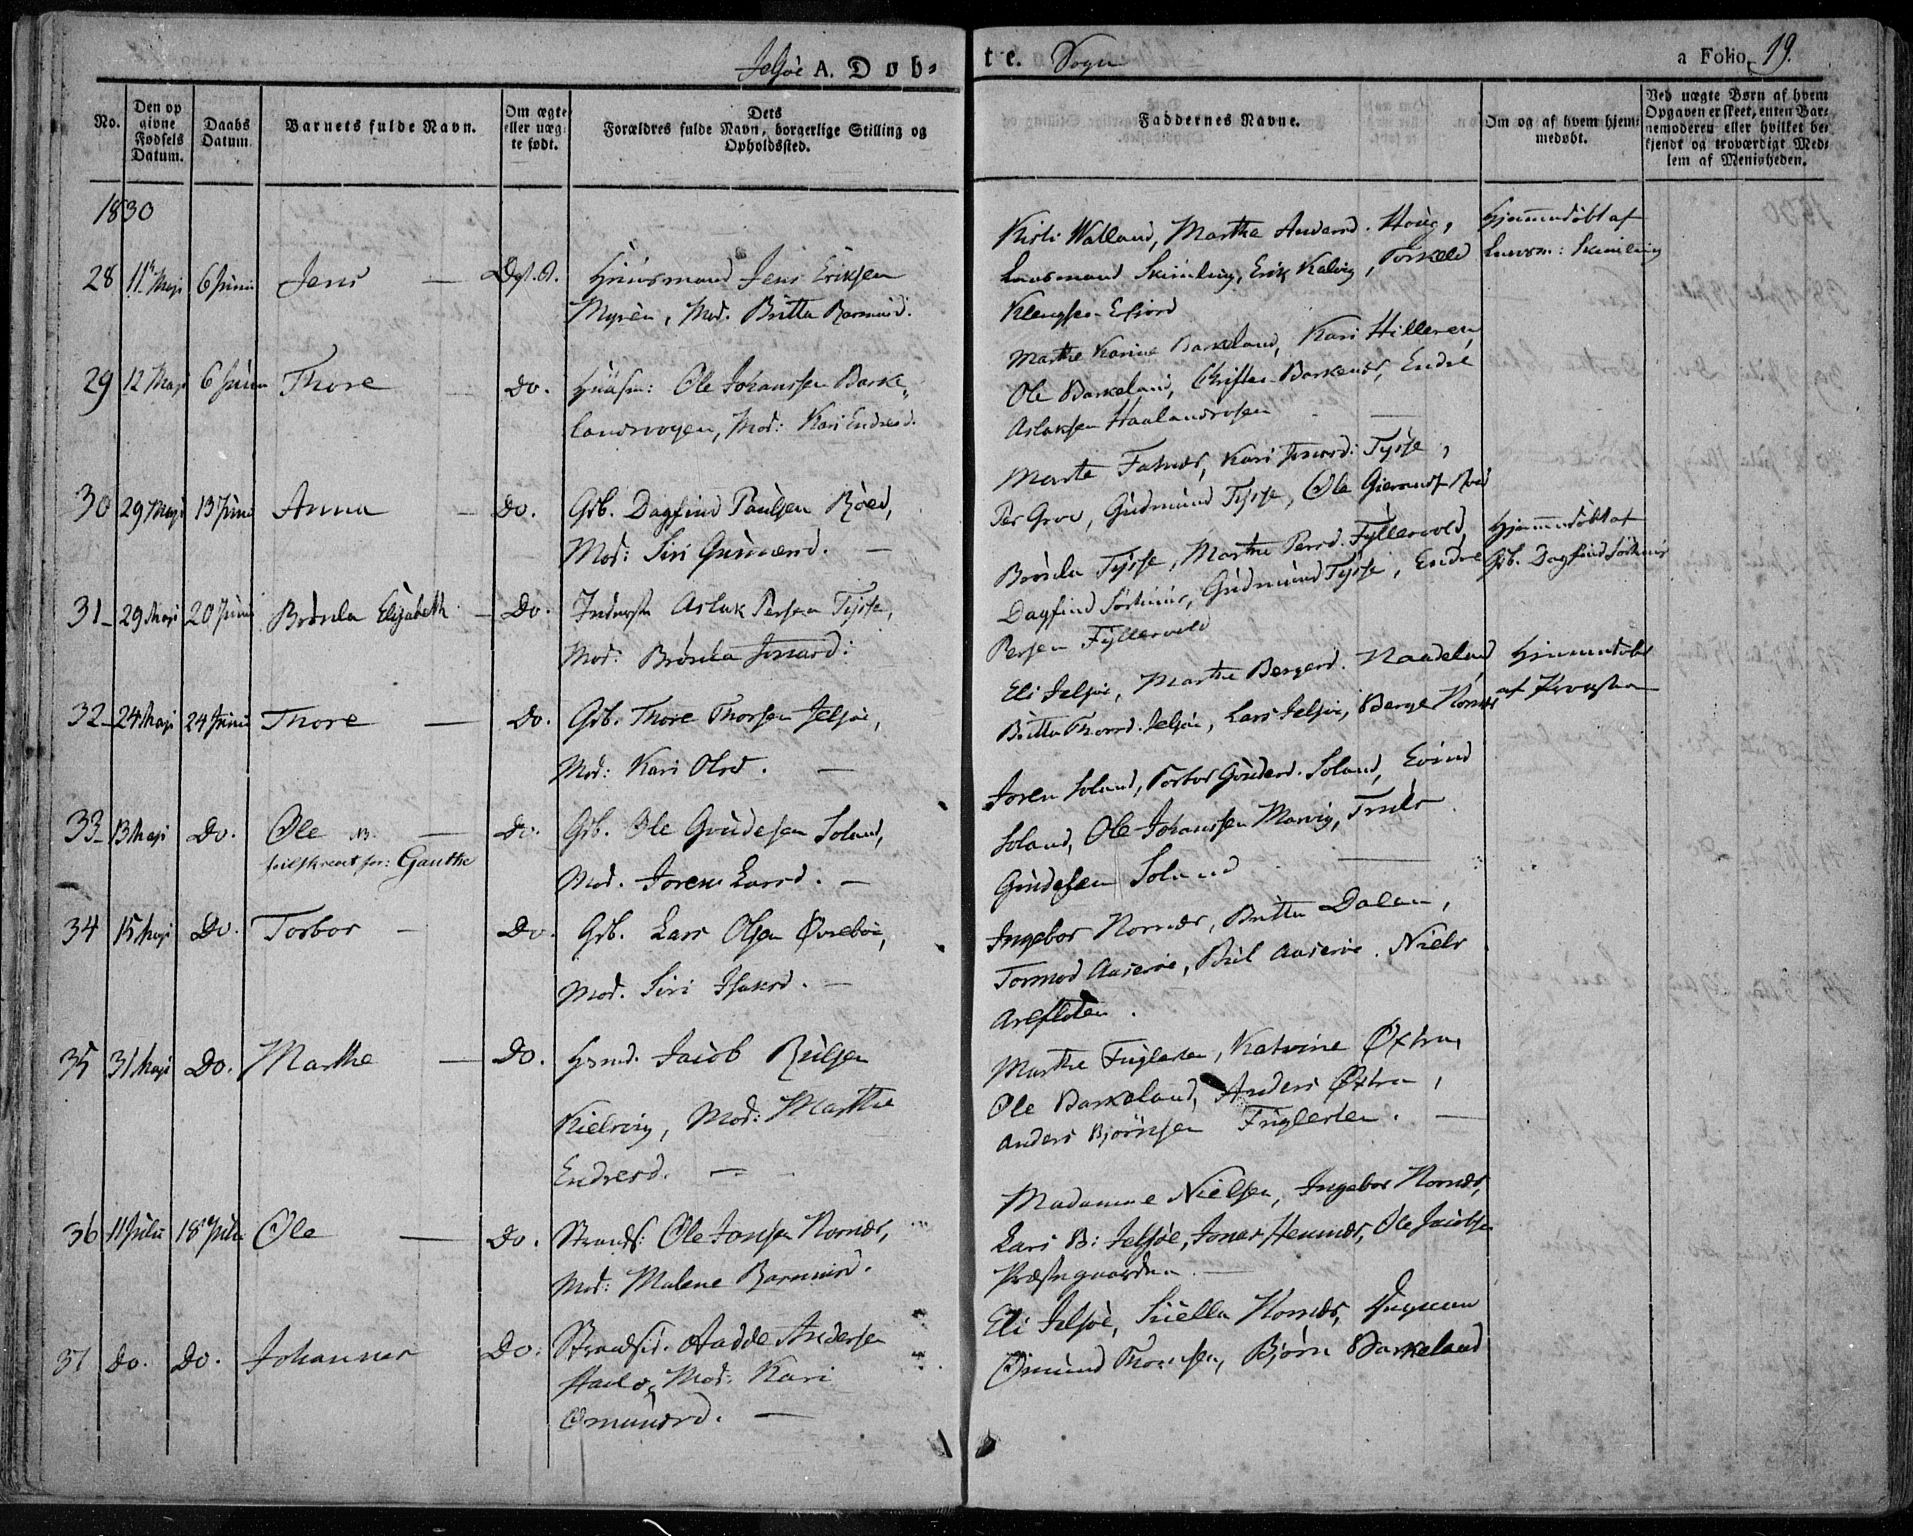 Jelsøe A. Døb-
te. Sogn
a Folio 19.
No.
Den op
givne
Fødsels
Datum.
Daabs
Datum.
Barnets fulde Navn.
Om ægte
eller uæg-
te født.
Dets
Forældres fulde Navn, borgerlige Stilling og
Opholdssted.
Faddernes Navne.
Om og af hvem hjem-
medøbt.
Ved uægte Børn af hvem
Opgaven er skeet, enten Bar-
nemoderen eller hvilket be-
kjendt og troværdigt Med-
lem af Menigheden.
1830
28 11te Maji 6 Junii Jens — Huusmand Jens Eriksen
Myren, Mod. Britta Rasmusd.
Kisti Walland, Marthe Andersd. Houg,
Erik Kalvig, Torkeld
Klengsen Efiord
Hjemmedøbt af
29 12 Maji 6 Junii Thore — Do. Huusm: Ole Johanssen Barke-
landsvogen, Mod: Kari Endresd.
Marthe Karine Barkeland, Kari Hilleren,
Ole Barkeland, Christen Barkeland, Endre
Aslaksen Haalandsosen —
30 29 Maji 13 Junii Anna — Do. Gsb. Dagfind Paulsen Røed,
Mod: Siri Gunnersd. —
Marte Fatnes, Kari Jonasd: Tysse,
Per Groe, Gudmund Tysse, Ole Røed
31 29 Maji 20 Junii Brønla Elisabeth — Do. Inderste Aslak Persen Tysse,
Mod: Brønla Jonasd:
Brønla Tysse, Marthe Persd. Fyllesvold,
Dagfind Sørhuus, Gudmund Tysse, Endre
Persen Fyllesvold
Hjemmedøbt af
Gsb. Dagfind Sørhuus
32 24 Maji 24 Junii Thore — Do. Gsb. Thore Thorsen Jelsøe,
Mod: Kari Olsd. —
Eli Jelsøe, Marthe Bergesd. Naadeland
Britta Thoresd. Jelsøe, Lars Jelsøe, Berge Nornes
Hjemmedøbt
af Provsten
33 13 Maji Do. Ole NB. — Do. Gsb. Ole Gundesen Soland,
feilskrevet for: Gauthe
Mod. Joren Larsd. —
Joren Soland, Torbor Gundesd. Soland, Eivind
Soland, Ole Johanssen Marvig, Truls
Gundesen Soland —
34 15 Maji Do. Torbor — Do. Gsb. Lars Olsen Øvrebøe,
Mod. Siri Isaksd. —
Ingebor Nornes, Britta Dalen,
Tormod Aaserøe, Niels
Arefloten.
35 31 Maji Do. Marthe — Do. Hsmd. Jacob
Kielvig, Mod: Marthe
Endresd. —
Marthe Fuglesten, Katrine Øxtra,
Ole Barkeland, Anders Øxtra,
Anders Bjørnsen Fuglesten. —
36 11 Julii 18 Julii Ole — Do. Strands: Ole Jonsen Nornes,
Mod: Malene Rasmusd.
Madamme Nielsen, Ingebor Nornes,
Lars B: Jelsøe, Jonas Hennes, Ole Jacobsen
Præstegaarden. —
37 Do. Do. Johannes Do: Strandsid. Aadde Andersen
Mod: Kari
Omundsd. —
Eli Jelsøe, Siella Nornes,
Omund Thomsen, Bjørn Barkeland